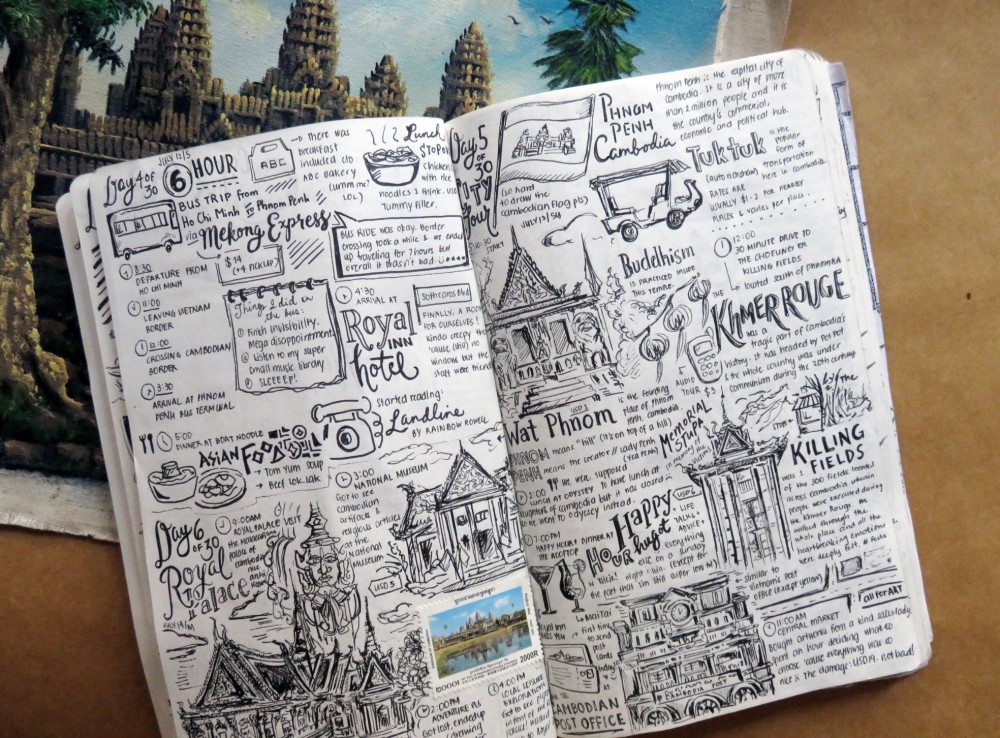 JULY 12/15
Day 4 OF 30
6 HOUR
BUS TRIP from
Ho Chi Minh to Phnom Penh
via Mekong Express
$14
(+4 PICKUP)
→ there was
breakfast
included c/o
ABC BAKERY
LOL)
ABC
Lunch
STOPOVER
chicken
with rice
noodles I think. USD
Tummy filler.
BUS RIDE was okay. Border
crossing took a while & we ended
up traveling for 7 hours but
overall it wasn't bad.
8:30
DEPARTURE FROM
HO CHI MINH
11:00
LEAVING VIETNAM
BORDER
12:00
CROSSING CAMBODIAN
BORDER
3:30
ARRIVAL AT PHNOM
PENH BUS TERMINAL
Things I did in
the bus:
① Finish Invisibility.
Mega disappointment
② Listen to my super
small music library
③ SLEEEEP!
4:30
ARRIVAL AT
Royal
INN
hotel
Sothearos Blvd
FINALLY, A ROOM
FOR OURSELVES!
kinda creepy tho
'cause (still) no
window but the
staff were friendly
Started reading:
Landline
BY RAINBOW ROWELL
5:00
DINNER AT BOAT NOODLE
ASIAN FOOD
→ Tom Yum Soup
→ Beef Lok Lak
3:00
NATIONAL MUSEUM
Got to see
cambodian
artifacts &
religious articles
in the
National
Museum
USD 5
Day 6
OF 30
Royal
Palace
JULY 14/15
9:00AM
ROYAL PALACE VISIT
2:00PM
ADVENTURE PLS
Got lost, ended up
drawing
4:00PM
LOCAL LEISURE
EXPLORATION
2000R
Day 5
OF 30
CITY
tour
START
PHNOM
PENH
Cambodia
Phnom Penh is the capital city of
Cambodia. It is a city of more
than 2 million people and it is
the country's commercial,
economic and political hub.
(so hard
to draw the
cambodian flag pls)
JULY 13/15
Tuk tuk
is the
popular
form of
transportation
here in cambodia.
(auto rickshaw)
RATES ARE
USUALLY $1-2 FOR NEARBY
PLACES & varies per place.
Buddhism
IS PRACTICED INSIDE
THIS TEMPLE.
12:00
30 MINUTE DRIVE TO
THE CHOEUNG EK
KILLING FIELDS
located south of PHNOM PENH
THE
KHMER ROUGE
was a
tragic part of cambodia's
history. It was headed by Pol Pot
& the whole country was under
communism during the 20th century
AUDIO
TOUR $3
USD 1
Wat Phnom
is the founding
place of Phnom
Penh, Cambodia.
PHNOM means "hill" (it's on top of a hill)
PENH means the creator // Lady Penh
(Yea Penh)
2:00
we were supposed
to have lunch at
but it was closed
so we went to odyssey instead
MEMORIAL
STUPA
The
KILLING
FIELDS
was 1
of the 300 fields located
across cambodia which
people were executed during
the Khmer Rouge. We
walked through the
whole place and all the
heartbreaking emotions
were deeply felt
7:00PM
HAPPY HOUR & DINNER AT
THE ROOFTOP
Happy
HOUR
hugot
USD 6
+ LIFE
TALKS +
ADVICE +
everything
else on a Sunday
night. Win. (except for
the part that I'm still super lost)
→ MAI TAI
First time
to send
post
cards
today!
CAMBODIAN
POST OFFICE
similar to
Vietnam's post
office (except yellow)
all for ART
11:00AM
CENTRAL MARKET
Bought artworks from a kind sales lady.
Spent an hour deciding what to
choose 'cause everything was so
nice & the damage: USD 19. not bad!